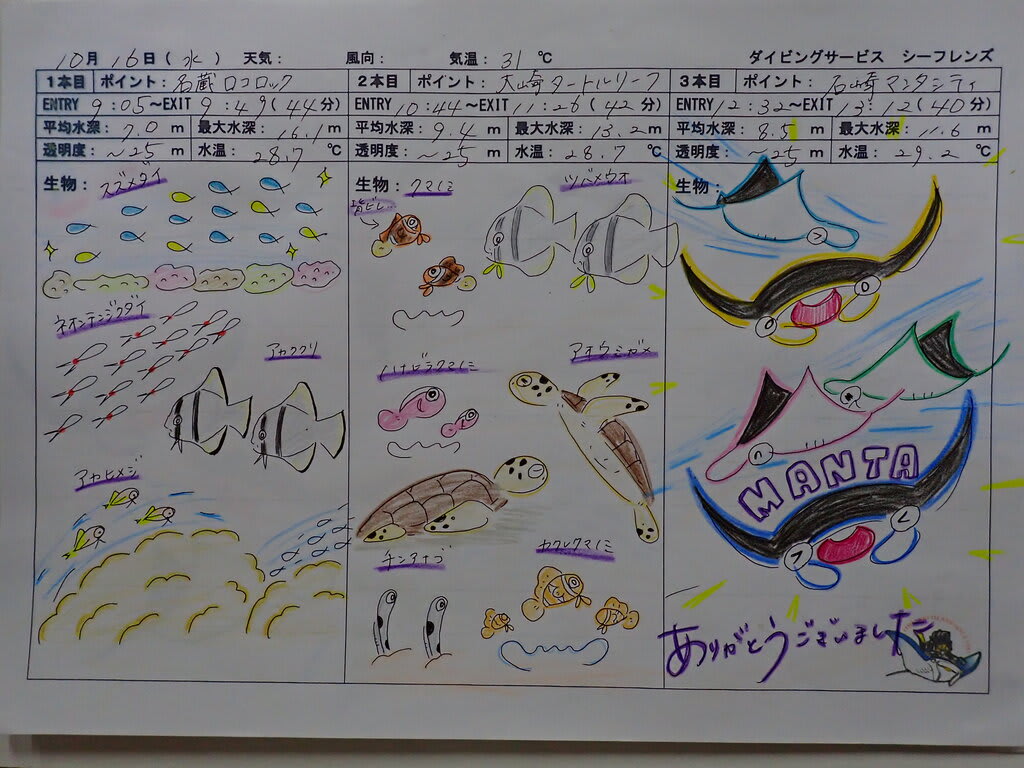 10月16日(水) 天気: 風向: 気温:31℃ ダイビングサービス シーフレンズ
1本目 ポイント:名蔵ロコロック
ENTRY 9:05~EXIT 9:49(44分)
平均水深:7.0m 最大水深:16.1m
透明度:~25m 水温:28.7℃
生物:スズメダイ
ネオンテンジクダイ
アカククリ
アカヒメジ
2本目 ポイント:大崎タートルリーフ
ENTRY 10:44~EXIT 11:26(42分)
平均水深:9.4m 最大水深:13.2m
透明度:~25m 水温:28.7℃
生物:クマノミ
ツバメウオ
背ビレ…
ハナビラクマノミ
アオウミガメ
チンアナゴ
カクレクマノミ
3本目 ポイント:石崎マンタシティ
ENTRY 12:32~EXIT 13:12(40分)
平均水深:8.5m 最大水深:11.6m
透明度:~25m 水温:29.2℃
生物:
MANTA
ありがとうございました